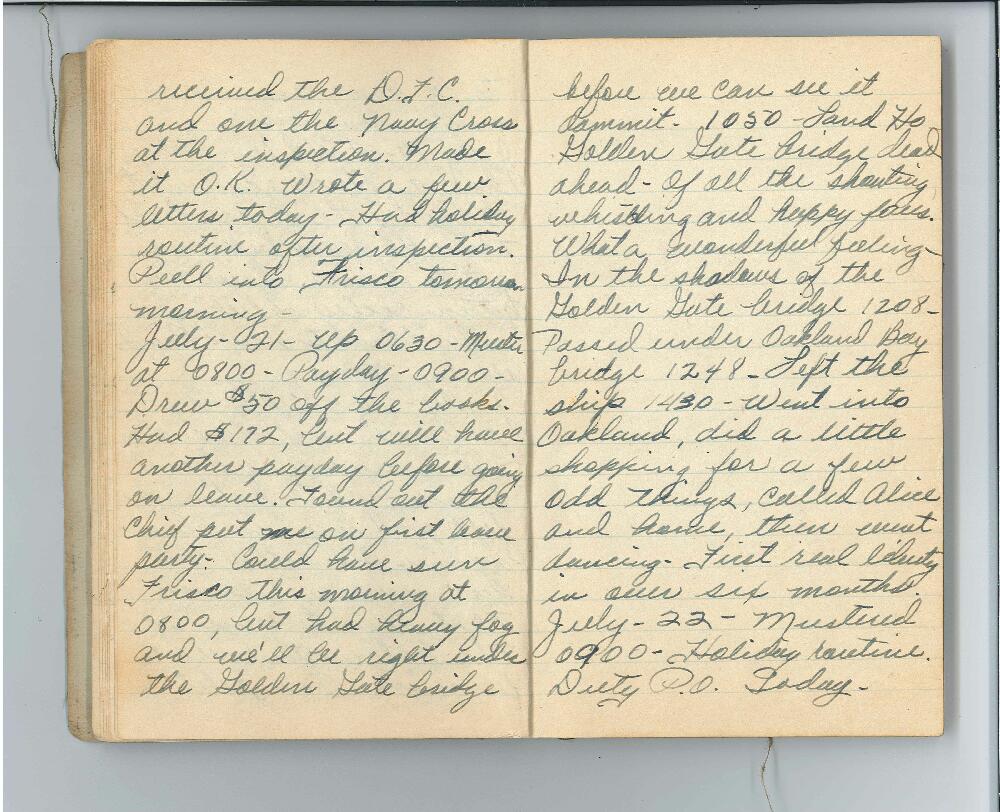 received the D.F.C.
and one the Navy Cross
at the inspection. Made
it O.K. Wrote a few
letters today - Had holiday
routine after inspection.
Pull into Frisco tomorrow
morning -
July - 21 - Up 0630 - Muster
at 0800 - Payday - 0900 -
Drew $50 off the books.
Had $172, but will have
another payday before going
on leave. Found out the
Chief put me on first leave
party - Could have seen
Frisco this morning at
0800, but had heavy fog
and we'll be right under
the Golden Gate bridge
before we can see it
dammit - 1050 - Land Ho
Golden Gate bridge dead
ahead - Of all the shouting,
whistling and happy faces.
What a wonderful feeling -
In the shadows of the
Golden Gate bridge 1208 -
Passed under Oakland Bay
bridge 1248 - Left the
ship 1430 - Went into
Oakland, did a little
shopping for a few
odd things, called Alice
and home, then went
dancing - First real liberty
in over six months.
July - 22 - Mustered
0900 - Holiday routine.
Duty P.O. Today -